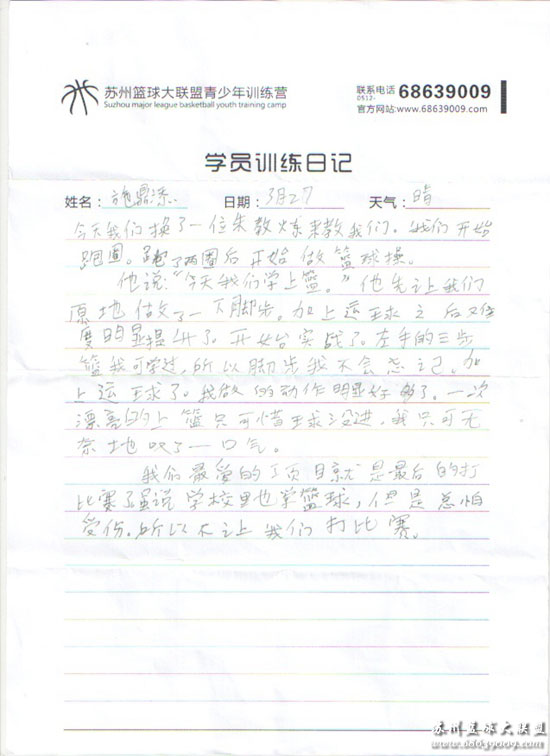 苏州篮球大联盟青少年训练营
Suzhou major league basketball youth training camp
联系电话 68639009
0512-
官方网站:www.68639009.com
学员训练日记
姓名: 施鼎添 日期: 3月27 天气: 晴
今天我们换了一位朱教炼来教我们。我们开始
跑圈。跑了两圈后开始做篮球操。
他说:“今天我们学上篮。”他先让我们
原地做了一下脚步。加上运球之后难
度明显提升了。开始实战了。左手的三步
篮我可学过,所以脚步我不会忘记。加
上运球了。我做的动作明显好多了。一次
漂亮的上篮只可惜球没进,我只可无
奈地叹了一口气。
我们最爱的项目就是最后的打
比赛了虽说学校里也学篮球,但是总怕
受伤。所以不让我们打比赛。
苏州篮球大联盟